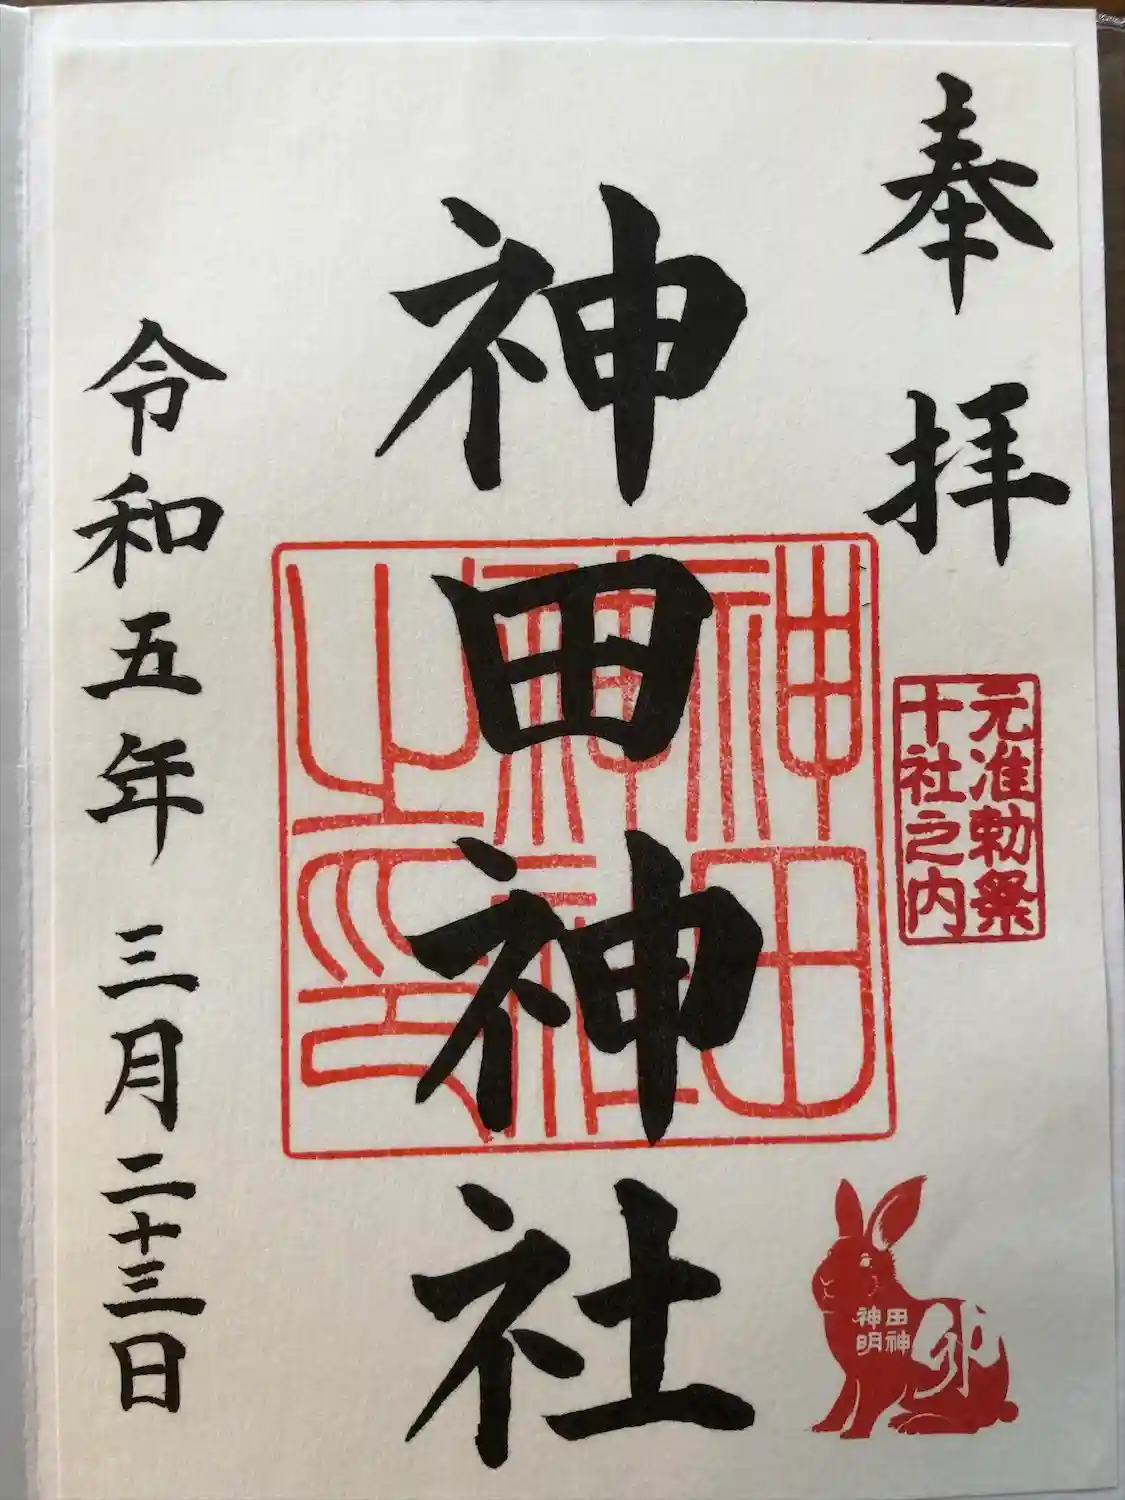 奉拝
元准勅祭
十社之内
神田神社
神田神社之印
田神
神明
卯
令和五年 三月二十三日